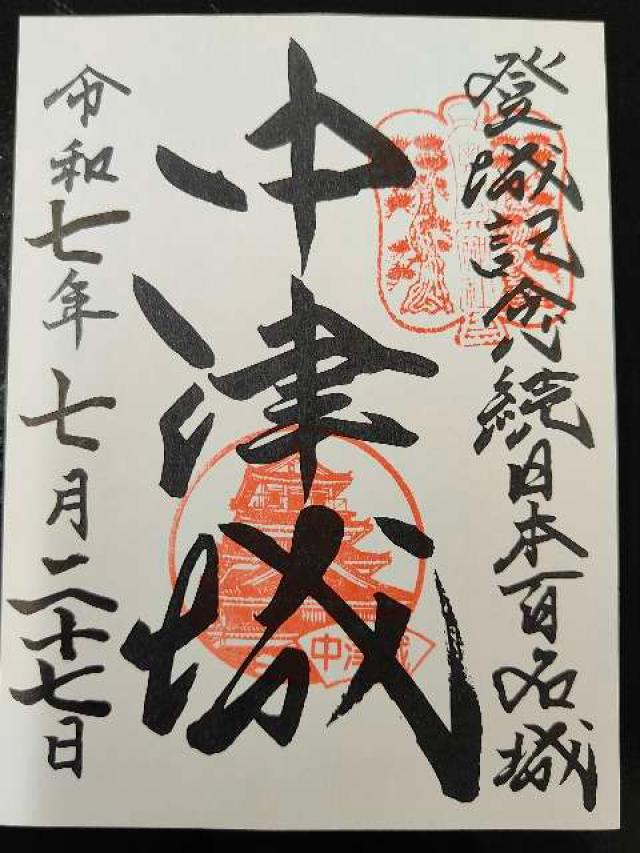 登城記念続日本百名城
中津城
中津城
令和七年七月二十七日